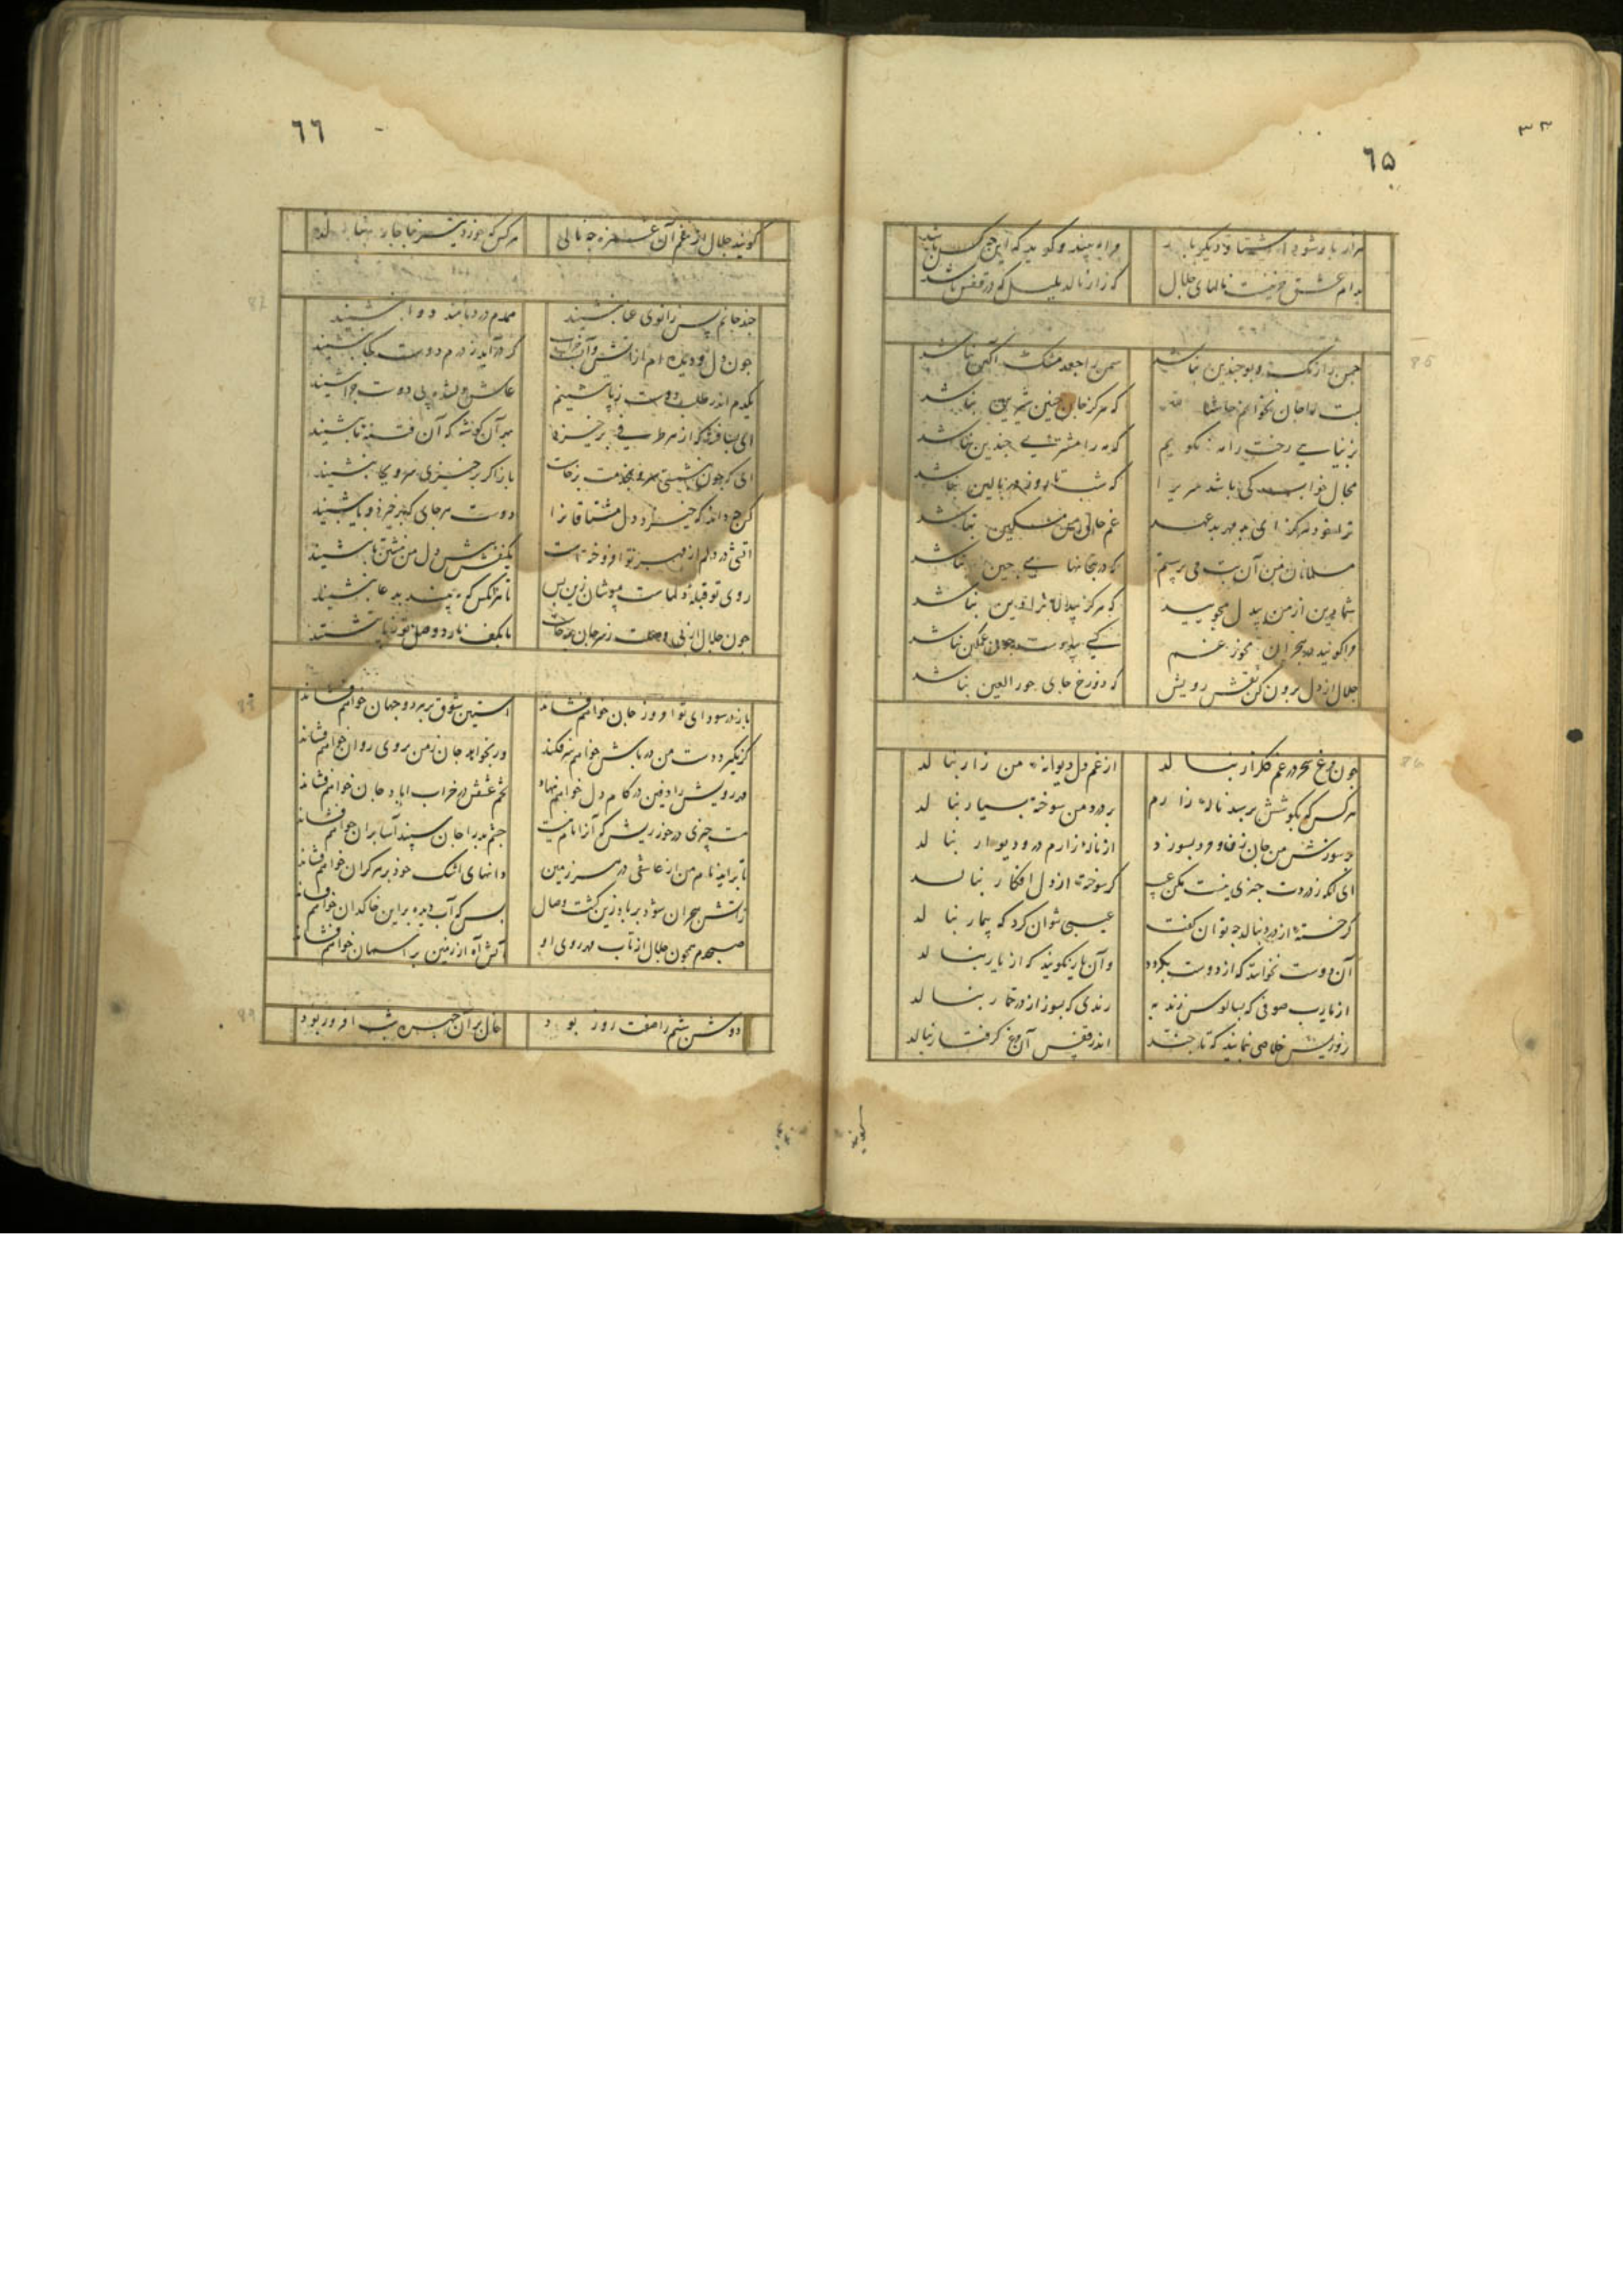 ٣٣
٦٥
هزار بار شود آشنا و دیگر بار مرا به بیند و گوید که این چه کس باشد
بدام عشق نالهای جلال که زار نالد بلبل که در قفس باشد
85
چمن را رنگ و بو چندین نباشد سمن را جعد مشک آگین نباشد
بت را جان نخوانم که هرگز جان چنین شیرین نباشد
به زیبایی رخت را مه نگویم که مه را مشتری چندین نباشد
مجال خواب کی باشد که شب تا روز در بالین نباشد
ترا خود هرگز ای بد مهر بد عهد غم حال من مسکین نباشد
مسلمانان من آن بت می پرستم که در بتخانهای چین نباشد
شما دین از من بیدل مجویید که هرگز بیدلان را دین نباشد
مرا گویند در هجران مخور غم کسی بی دوست چون غمگین نباشد
جلال از دل برون کن نقش رویش که دوزخ جای حور العین نباشد
86
چون مرغ سحر در غم گلزار بنالد از غم دل دیوانه من زار بنالد
هر کس که بگوشش برسد ناله زارم بر درد من سوخته بسیار بنالد
سوزش من جان بسوزد از ناله زارم در و دیوار بنالد
ای آنکه ز دردت خبری نیست مکن عیب گر سوخته از دل افکار بنالد
گر خسته از درد بنالد چه توان گفت عیبی نتوان کرد که بیمار بنالد
آن دوست نخوانند که از دوست بگردد وآن یار نگویند که از یار بنالد
از یارب صوفی که بسالوس زند به رندی که بسوز از در خمار بنالد
روزیش خلاصی نمایند که تا چند اندر قفس آن مرغ گرفتار بنالد
گویند
٦٦
گویند جلال از غم آن غمزه چه نالی هر کس که خورد نیشتر ناچار بنالد
87
چند جانم پس زانوی عنا بنشیند همدم درد بماند دوا بنشیند
چون دل و دیده ام از آتش و آب گر درآید ز درم دوست کجا بنشیند
یکدم اندر طلب دوست ز پا ننشینم عاشق دلشده بی دوست چرا بنشیند
ای بسا فتنه که از هر طرفی برخیزد بهر آن گوشه که آن فتنه ما بنشیند
ای که چون بنشستی سرو بخدمت برخاست باز اگر برخیزی سرو بجا بنشیند
گرچه داند که خیزد دل مشتاقانرا دوست هر جای که برخیزد و یا بنشیند
آتشی در دلم از مهر تو افروخته است یکنفس پیش دل من بنشین تا بنشیند
روی تو قبله دلهاست مپوشان زین پس تا هر آنکس که به بیند بدعا بنشیند
چون جلال از پی وصلت ز سر جان برخاست
88
باز در سودای تو امروز جان خواهم فشاند آستین شوق بر هر دو جهان خواهم فشاند
گر نگیرد دست من در پایش خواهم سر فکند ور بخواهد جان ز من بر وی روان خواهم فشاند
درد رویش را دفین در کام دل خواهم نهاد تخم عشقش در خراب آباد جان خواهم فشاند
نیست چیزی در خور پیشکش آنرا چشم بد را جان سپند آسا بر آن خواهم فشاند
تا برآید نام من از عاشقی در هر سرزمین دانهای اشک خود بر هر کران خواهم فشاند
زآتش هجران شود بر باد زین کشت وصال بس که آب دیده بر این خاکدان خواهم فشاند
صبحدم همچون جلال از تاب مهر روی او آتش آه از زمین بر آسمان خواهم فشاند
89
دوش شبم را صفت روز بود خال بر آن چهره شب افروز بود